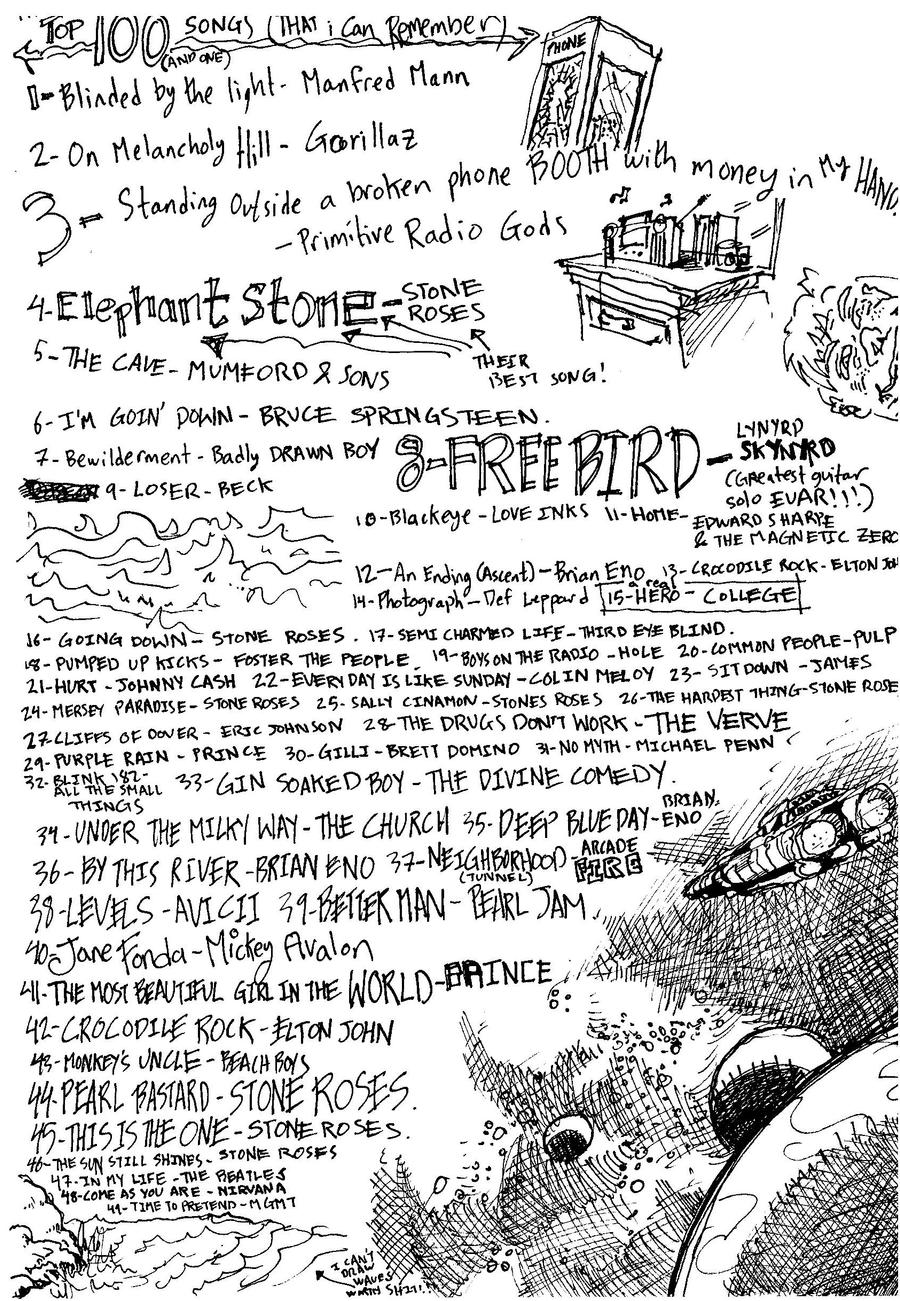 TOP 100 SONGS (THAT i Can Remember)
(AND ONE)
PHONE
1- Blinded by the light - Manfred Mann
2- On Melancholy Hill - Gorillaz
3- Standing Outside a broken phone BOOTH with money in my HAND.
- Primitive Radio Gods
4- Elephant Stone - STONE ROSES
THEIR BEST SONG!
5- THE CAVE - MUMFORD & SONS
6- I'M GOIN' DOWN - BRUCE SPRINGSTEEN.
7- Bewilderment - Badly DRAWN BOY
8- FREE BIRD - LYNYRD SKYNYRD
(Greatest guitar solo EVAR!!!)
9- LOSER - BECK
10- Blackeye - LOVE INKS 11- HOME - EDWARD SHARPE
& THE MAGNETIC ZERO
12- An Ending (Ascent) - Brian Eno 13- CROCODILE ROCK - ELTON JOH
14- Photograph - Def Leppard 15- a real HERO - COLLEGE
16- GOING DOWN - STONE ROSES. 17- SEMI CHARMED LIFE - THIRD EYE BLIND.
18- PUMPED UP KICKS - FOSTER THE PEOPLE 19- BOYS ON THE RADIO - HOLE 20- COMMON PEOPLE - PULP
21- HURT - JOHNNY CASH 22- EVERY DAY IS LIKE SUNDAY - COLIN MELOY 23- SIT DOWN - JAMES
24- MERSEY PARADISE - STONE ROSES 25- SALLY CINAMON - STONES ROSES 26- THE HARDEST THING - STONE ROSE
27- CLIFFS OF DOVER - ERIC JOHNSON 28- THE DRUGS DON'T WORK - THE VERVE
29- PURPLE RAIN - PRINCE 30- GILLI - BRETT DOMINO 31- NO MYTH - MICHAEL PENN
32- BLINK 182 - ALL THE SMALL THINGS 33- GIN SOAKED BOY - THE DIVINE COMEDY.
34- UNDER THE MILKY WAY - THE CHURCH 35- DEEP BLUE DAY - BRIAN ENO
36- BY THIS RIVER - BRIAN ENO 37- NEIGHBORHOOD (TUNNEL) - ARCADE FIRE
38- LEVELS - AVICII 39- BETTER MAN - PEARL JAM
40- Jane Fonda - Mickey Avalon
41- THE MOST BEAUTIFUL GIRL IN THE WORLD - PRINCE
42- CROCODILE ROCK - ELTON JOHN
43- MONKEY'S UNCLE - BEACH BOYS
44- PEARL BASTARD - STONE ROSES.
45- THIS IS THE ONE - STONE ROSES.
46- THE SUN STILL SHINES - STONE ROSES
47- IN MY LIFE - THE BEATLES
48- COME AS YOU ARE - NIRVANA
49- TIME TO PRETEND - MGMT
I CAN'T
DRAW
WAVES
WORTH SHIT!!!